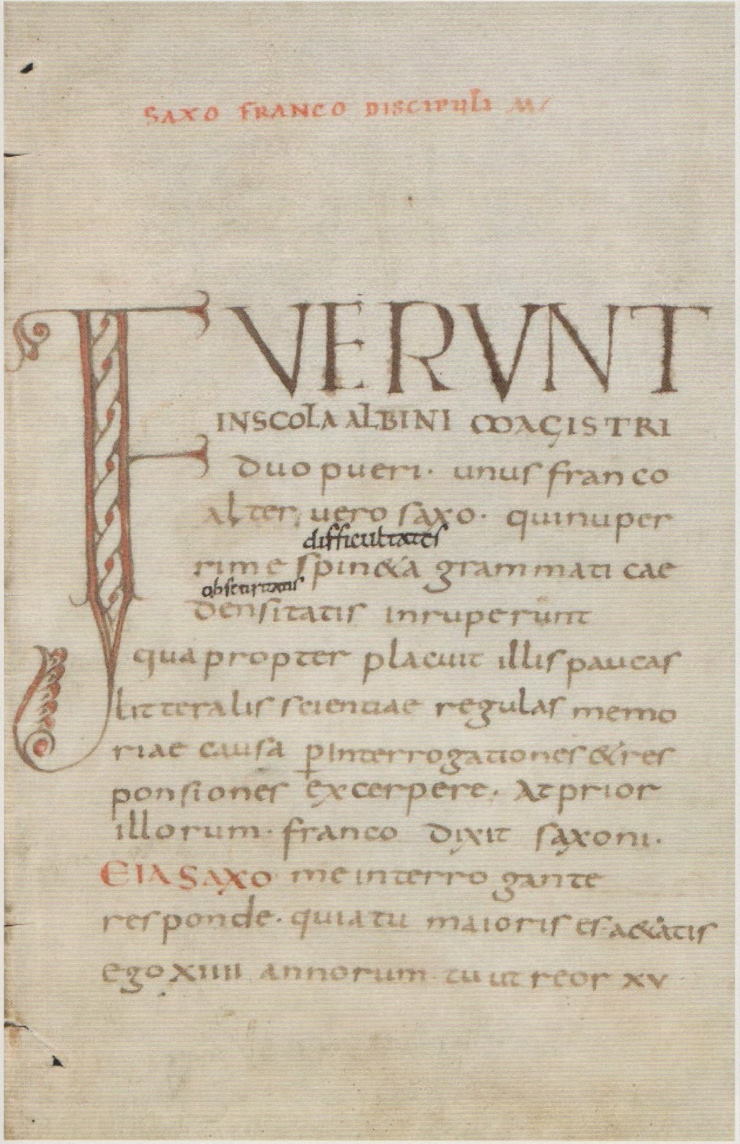 SAXO FRANCO DISCIPULI
FUERUNT
INSCOLA ALBINI MAGISTRI
duo pueri · unus franco
alter vero saxo · quinuper
difficultates
rime spin&a grammati cae
obscuritatis
densitatis inruperunt
qua propter placuit illis paucas
litteralis scientiae regulas memo
riae causa pinterrogationes &res
ponsiones excerpere · At prior
illorum · franco dixit saxoni ·
EIA SAXO me interro gante
responde · quia tu maioris es a&atis
ego XIIII annorum · tu ut reor XV